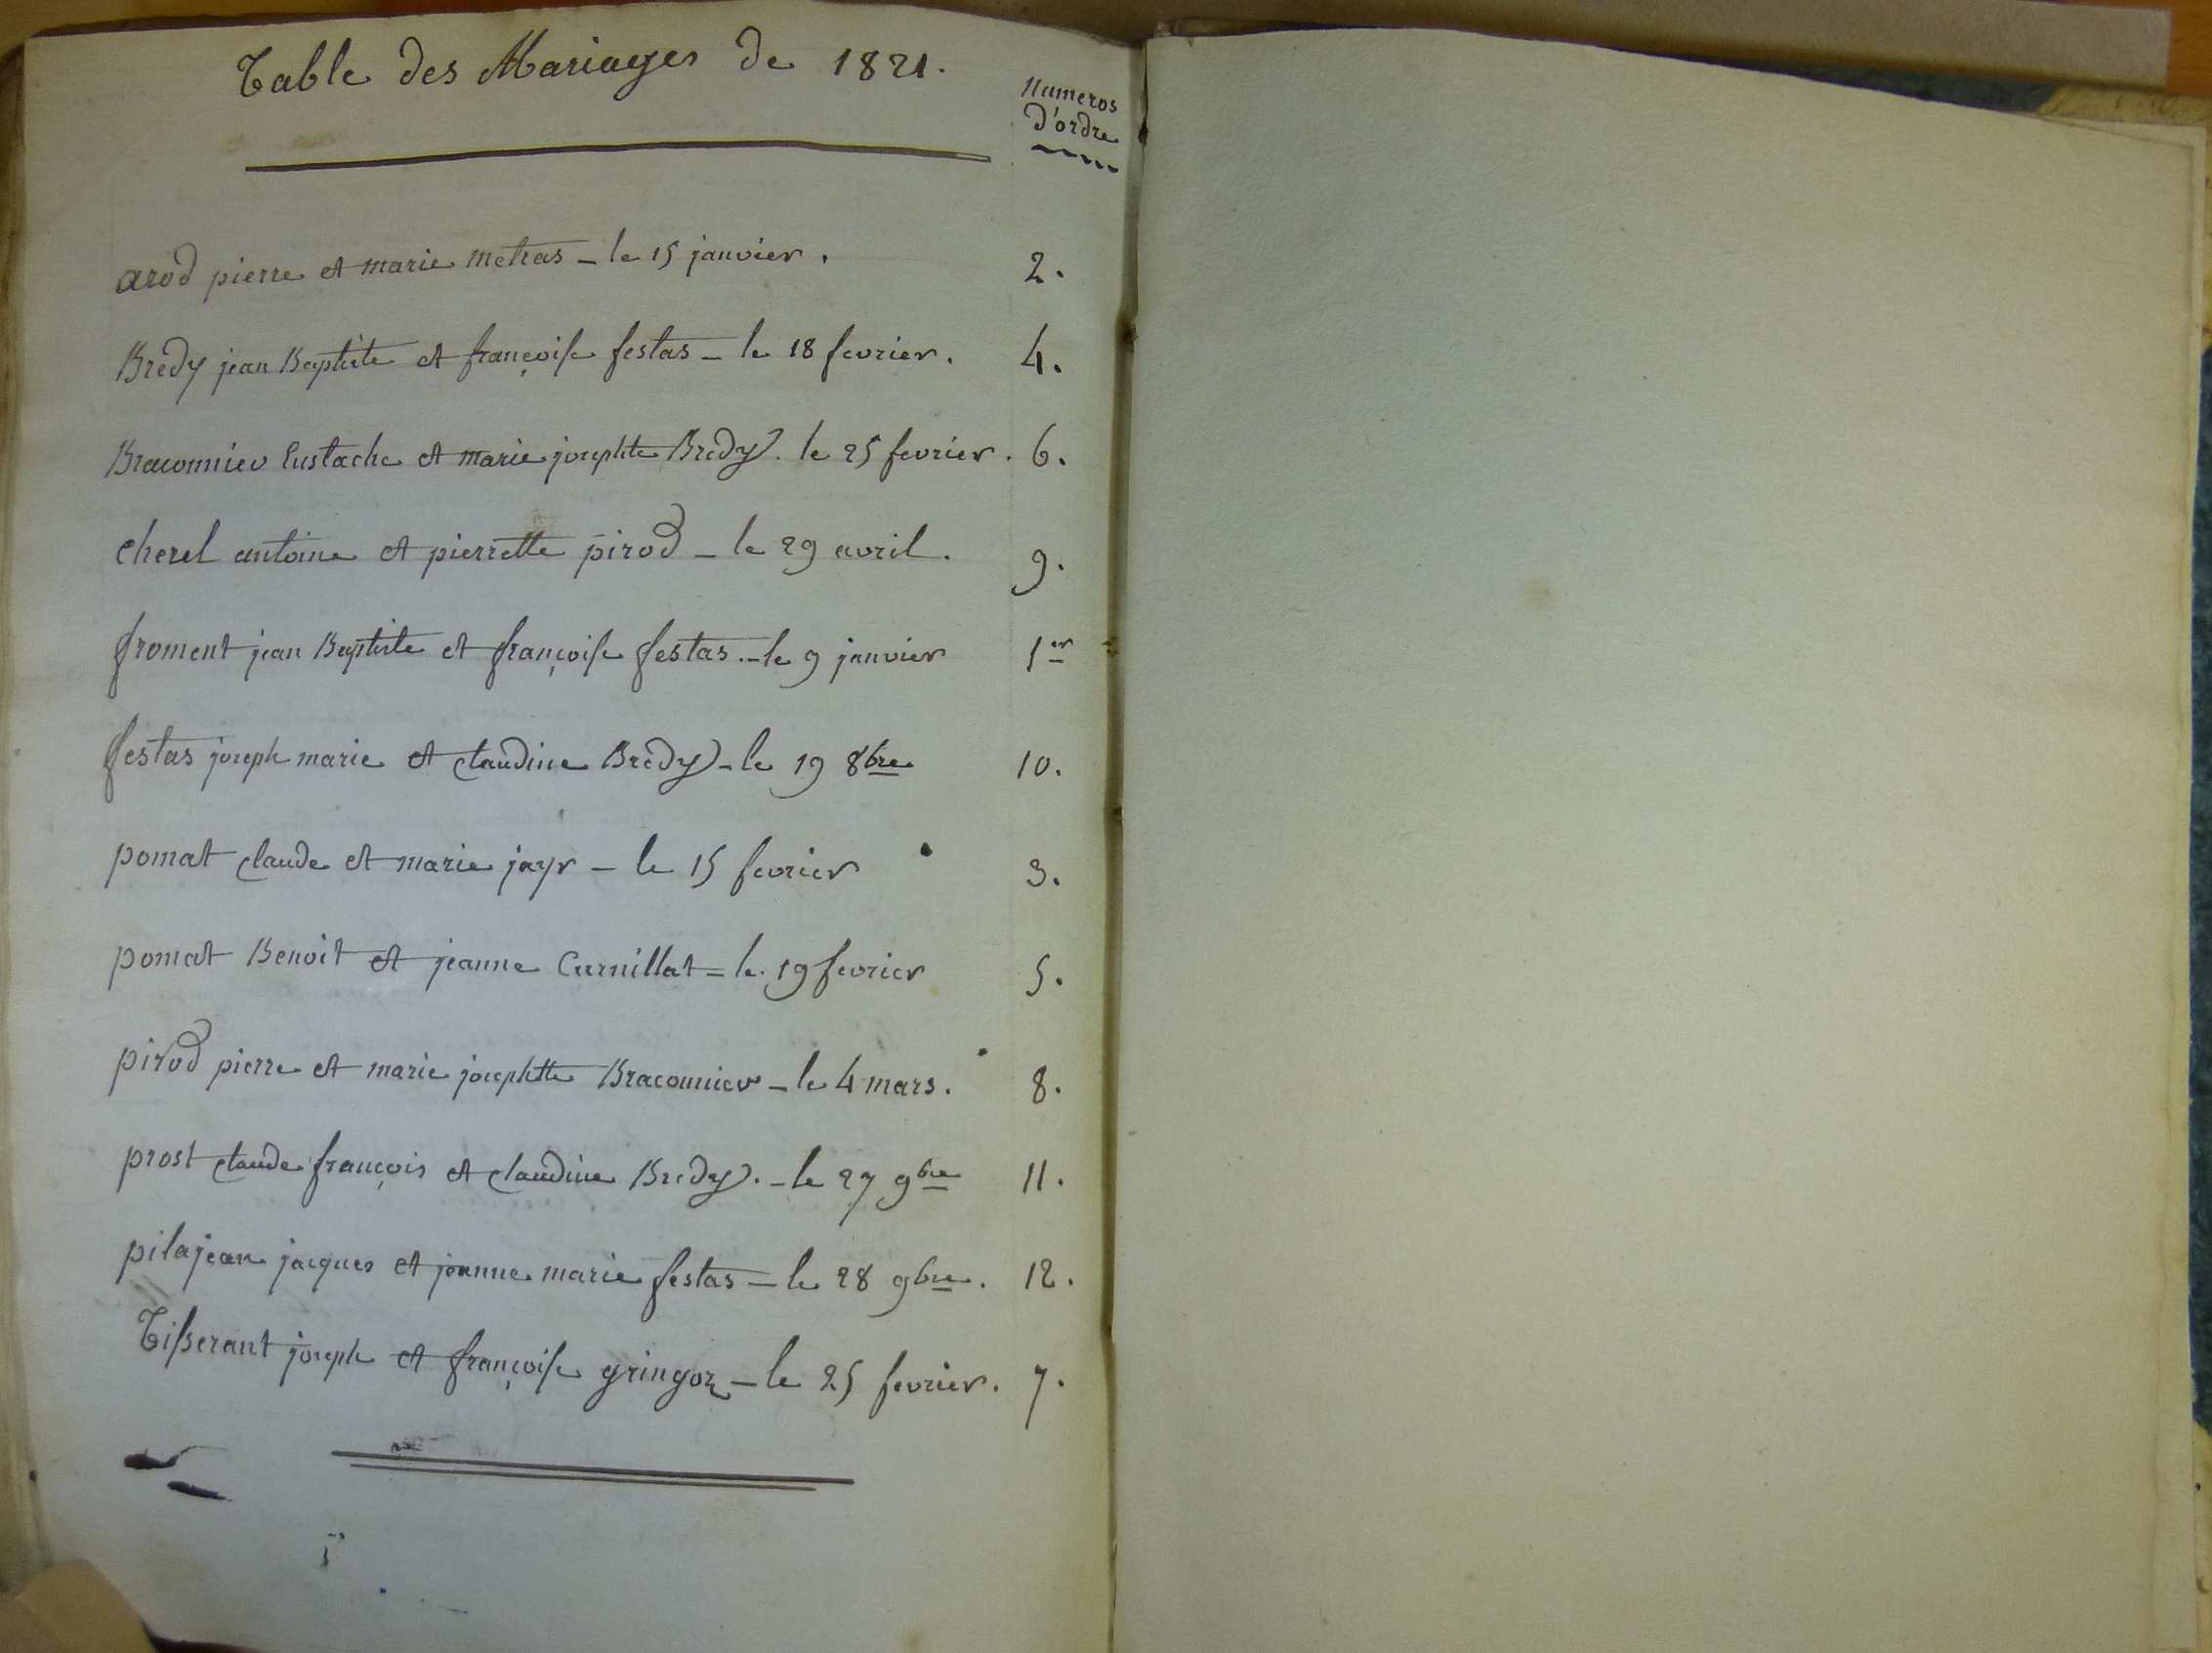 Table des Mariages de 1821.
Numeros
d'ordre
arod pierre et marie metras - le 15 janvier. 2.
Bredy jean Baptiste et françoise festas - le 18 fevrier. 4.
Braconnier Eustache et marie josephte Bredy. le 25 fevrier. 6.
cherel antoine et pierrette pirod - le 29 avril. 9.
froment jean Baptiste et françoise festas. - le 9 janvier 1er
festas joseph marie et claudine Bredy - le 19 8bre 10.
pomat claude et marie jayr - le 15 fevrier 3.
pomat Benoit et jeanne Curnillat = le 19 fevrier 5.
pirod pierre et marie josephtte Braconnier - le 4 mars. 8.
prost claude françois et claudine Bredy. - le 27 9bre 11.
pilajean jacques et jeanne marie festas - le 28 9bre. 12.
Tisserant joseph et françoise gringoz - le 25 fevrier. 7.